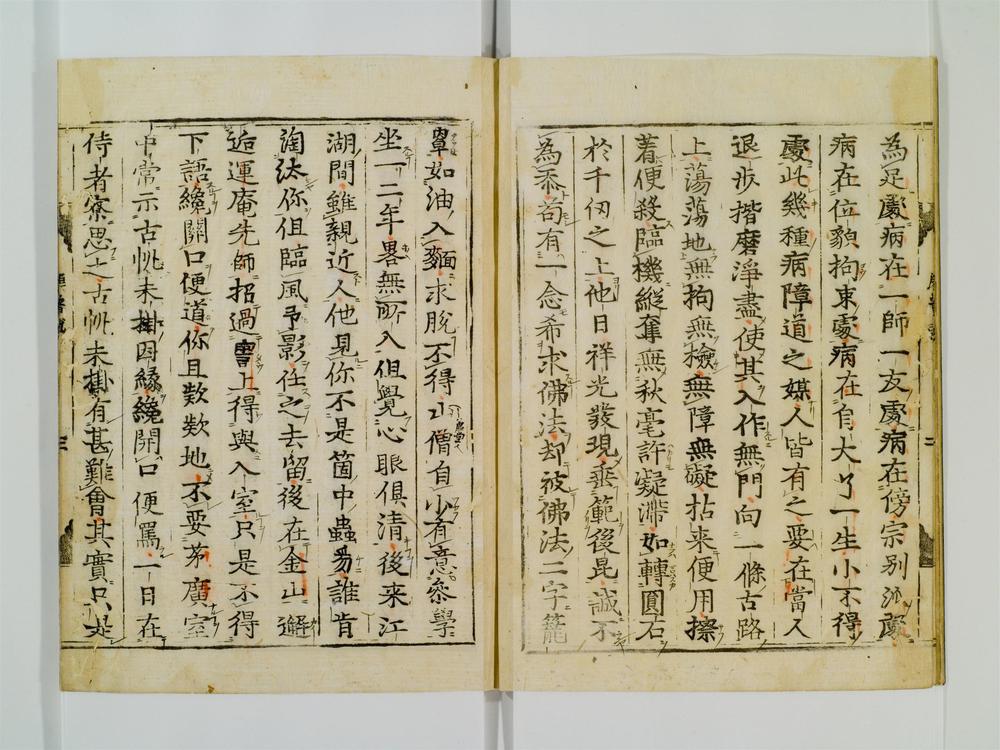 為足處病在一師一友處病在傍宗別派處
病在位貌拘束處病在自大了一生小不得
處此幾種病障道之媒人皆有之要在當人
退步揩磨淨盡使其入作無門向一條古路
上蕩蕩地無拘無檢無障無礙拈来便用擦
着便殺臨機縱奪無秋毫許凝滯如轉圓石
於千仞之上他日祥光發現垂範後昆誠不
為忝苟有一念希求佛法却被佛法二字籠
罩如油入麵求脫不得山僧自少有意叅學
坐一二年畧無所入但覺心眼俱清後来江
湖間雖親近人他見你不是箇中蟲豸誰肯
淘汰你但臨風弔影任之去留後在金山邂
逅運庵先師招過雪上得與入室只是不得
下語纔開口便道你且欵欵地不要茅廣室
中常示古帆未掛因緣纔開口便罵一日在
侍者寮思之古帆未掛有甚難會其實只是